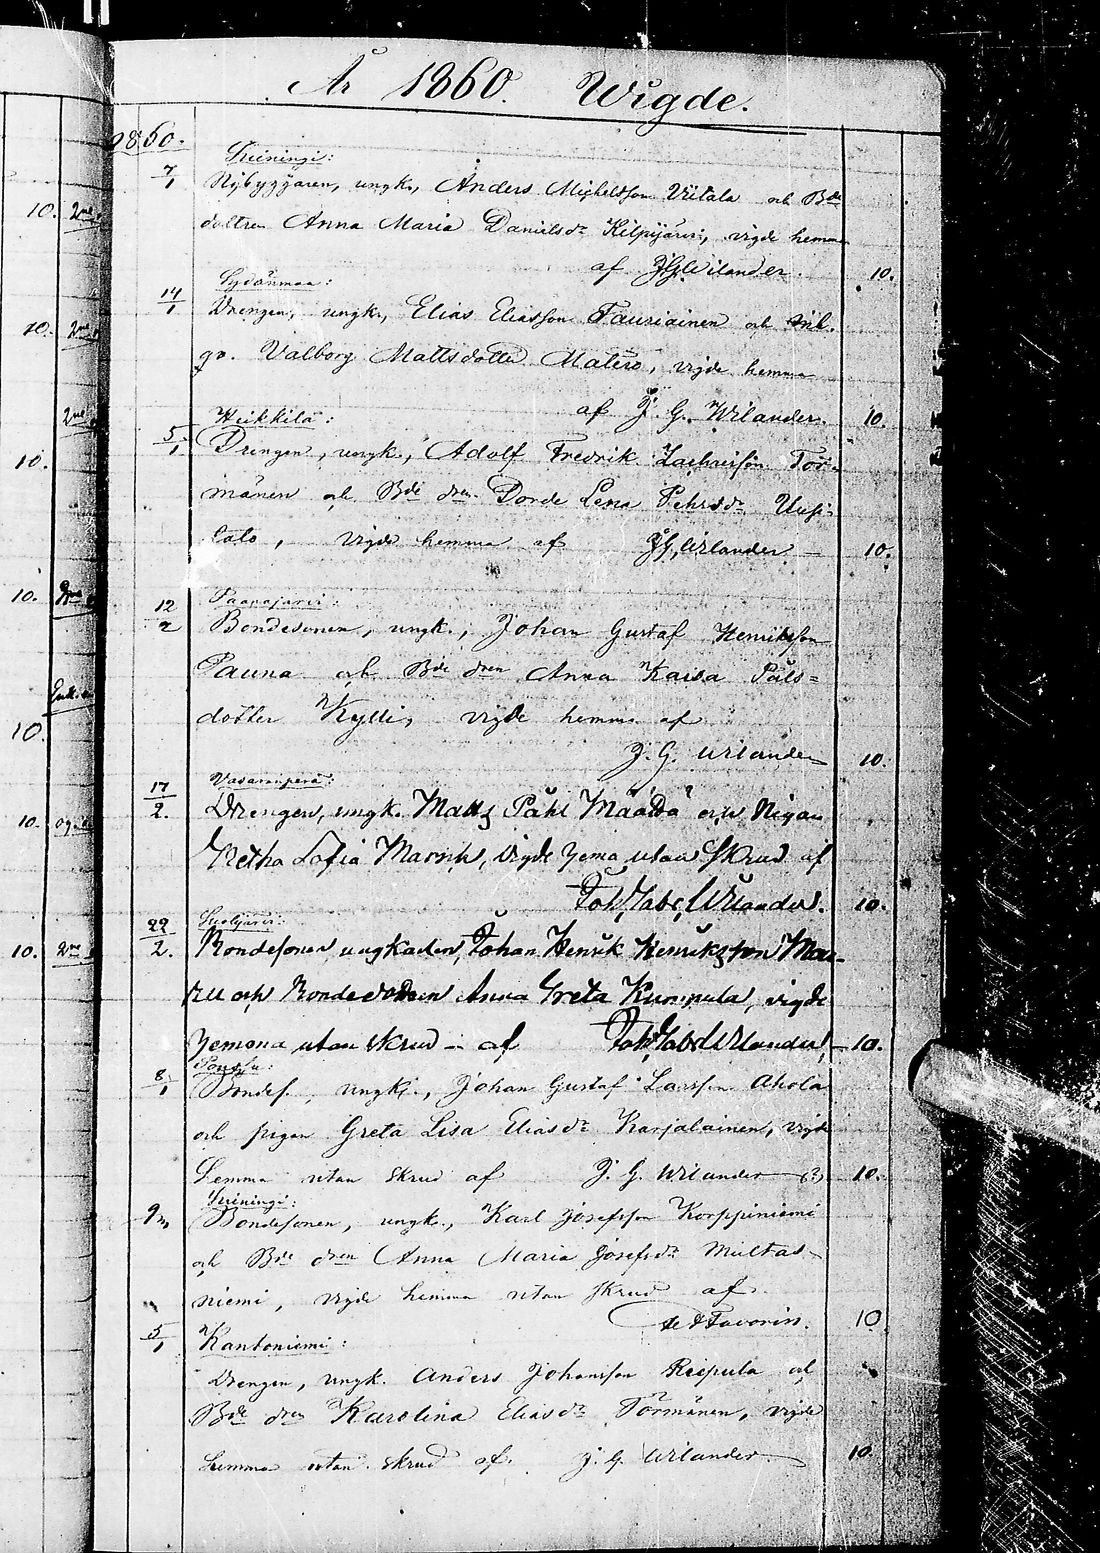 År 1860. Wigde.
1860.
Suiningi:
7/1 Nybyggaren, ungk., Anders Michelsson Viitala och Bde
dottren Anna Maria Danielsdr Kilpijärvi, vigde hemma
af J G Wilander. 10.
Sydänmaa:
14/1 Drengen, ungk., Elias Eliasson Tauriainen och Ink.
qv. Valborg Mattsdotter Matero, vigde hemma
af J. G. Wilander. 10.
Heikkilä:
5/1 Drengen, ungk., Adolf Fredrik Zachrisson Tör-
mänen och Bde dren Lena Pehrsdr Uusi-
talo, vigde hemma af J G Wilander – 10.
Paanajärvi:
12/2 Bondesonen, ungk., Johan Gustaf Henriksson
Pauna och Bde dren Anna Kaisa Påls=
dotter Kylli, vigde hemma af
J. G. Wilander 10.
Vasaraperä:
17/2. Drengen, ungk. Matts Påhl Määttä och Pigan
Gretha Sofia, vigde hema utan skrud af
Joh. Gabr. Wilander. 10.
Suolijärvi:
22/2. Bondesonen, ungkarlen, Johan Henrik Henriksson Mou-
ru och Bondedottren Anna Greta Kumpula, vigde
hemma utan skrud – af Joh. Gabr. Wilander, – 10.
8/1 Bondes., ungk., Johan Gustaf Larsson Ahola
och pigan Greta Lisa Eliasdr Karjalainen, vigde
hemma utan skrud af J. G. Wilander 10.
Suiningi:
9/3 Bondesonen, ungk., Karl Josefsson Korppiniemi
och Bde dren Anna Maria Josefsdr Multas-
niemi, vigde hemma utan skrud af
Favorin. 10
5/1 Kantoniemi:
Drengen, ungk. Anders Johansson Reipula och
Bde dren Karolina Eliasdr Törmänen, vigde
hemma utan skrud af J. G. Wilander 10.